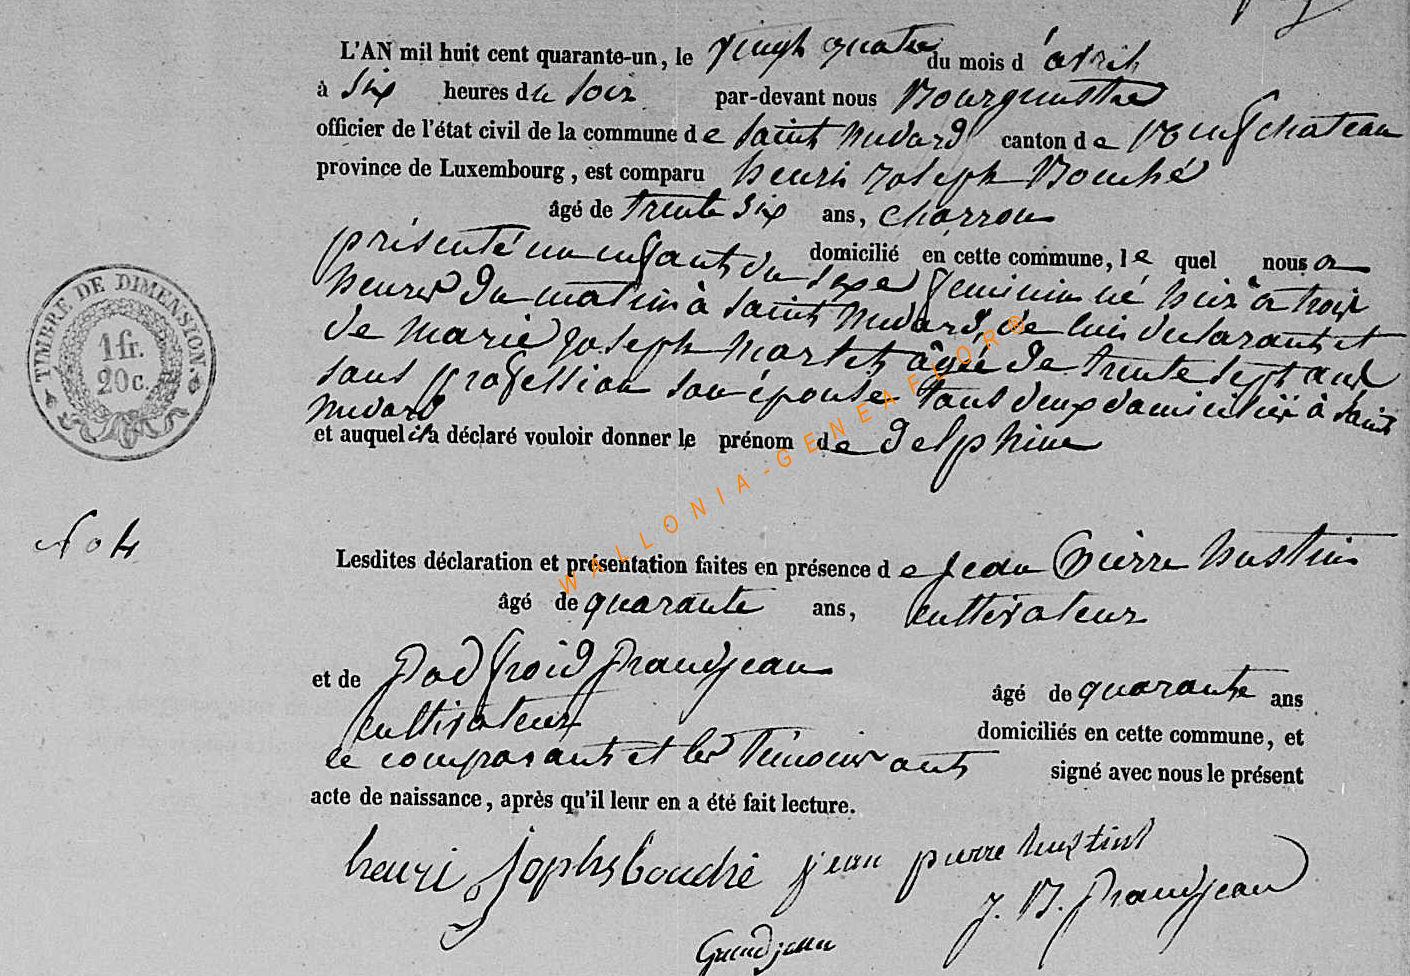 L'AN mil huit cent quarante-un, le vingt quatre du mois d'avril
à six heures du soir par-devant nous Bourguemstre
officier de l'état civil de la commune de saint medard canton de neufchateau
province de Luxembourg, est comparu henri joseph Bouché
âgé de trente six ans, charron
domicilié en cette commune, lequel nous a
présenté un enfant du sexe feminin né hier à trois
heures du matin à saint medard, de lui declarant et
de marie joseph martet âgée de trente sept ans
sans profession son épouse tous deux domiciliés à saint
medard
et auquel il a déclaré vouloir donner le prénom de delphine
No 4
Lesdites déclaration et présentation faites en présence de jean pierre hustin
âgé de quarante ans, cultivateur
et de godfroid grandjean
âgé de quarante ans
cultivateur
domiciliés en cette commune, et
le comparant et les témoins ont signé avec nous le présent
acte de naissance, après qu'il leur en a été fait lecture.
henri jophs bouché jean pierre hustin
J. B. grandjean
Grandjean
TIMBRE DE DIMENSION.
1 fr.
20 c.
WALLONIA-GENEAFLOR®